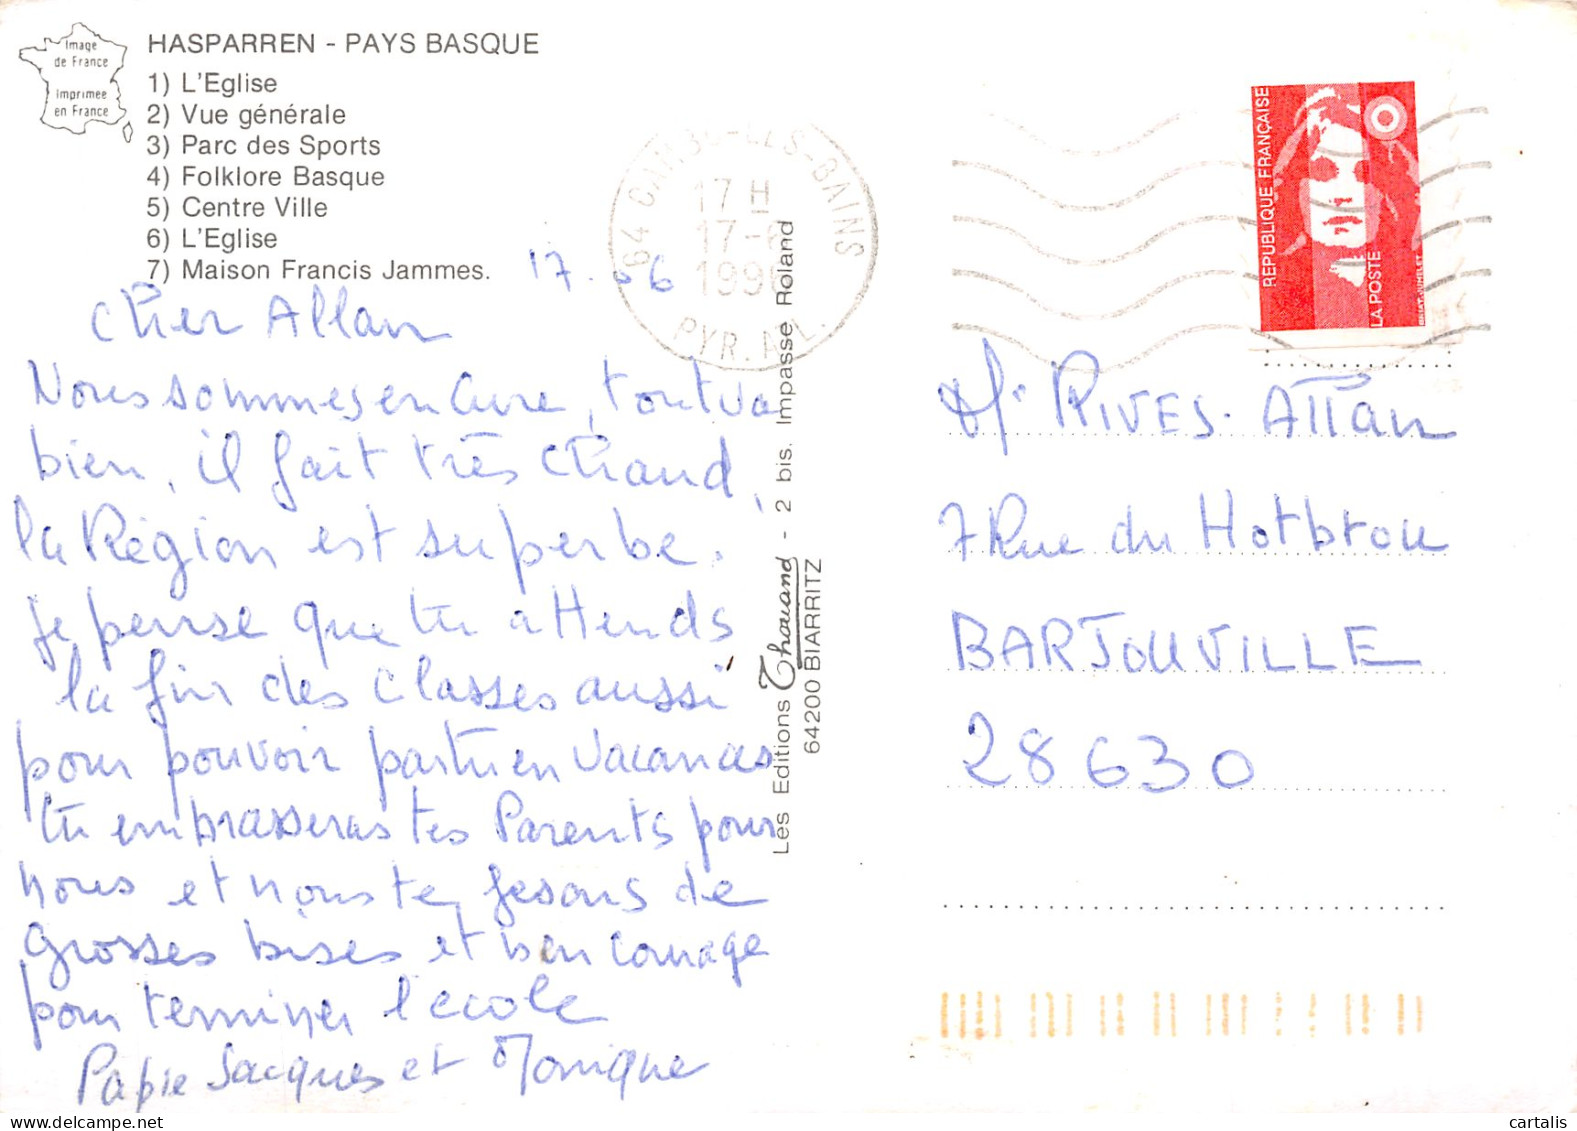 Image
de France
Imprimée
en France
HASPARREN - PAYS BASQUE
1) L'Eglise
2) Vue générale
3) Parc des Sports
4) Folklore Basque
5) Centre Ville
6) L'Eglise
7) Maison Francis Jammes.
17 H
PYR. ATL.
RÉPUBLIQUE FRANÇAISE
LA POSTE
17.06
cher Allan
Nous sommes en Cure, tout va
bien, il fait très chaud,
la Région est superbe.
je pense que tu attends
la fin des classes aussi
pour pouvoir partir en vacances
tu embrasseras tes Parents pour
nous et nous te fesons de
grosses bises et bon courage
pour terminer l'ecole
Papie Jacques et Monique
Les Editions Thouand - 2 bis. Impasse Roland
64200 BIARRITZ
Mr RIVES. Allan
7 Rue du Hotbrou
BARJOUVILLE
28630
cartalis